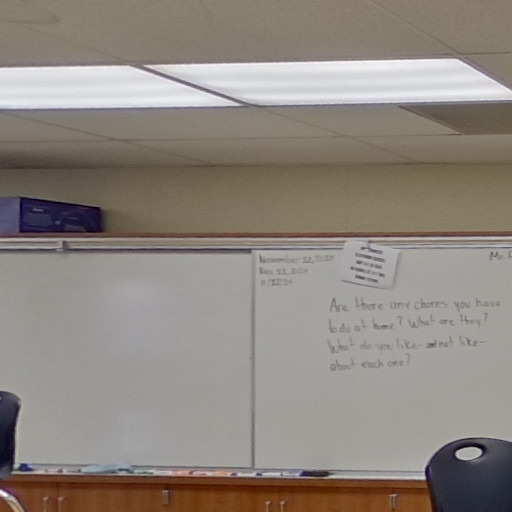 November 22, 2024
Nov. 22, 2024
11/22/24
Mr.
Are there any chores you have
to do at home? What are they?
What do you like- and not like-
about each one?